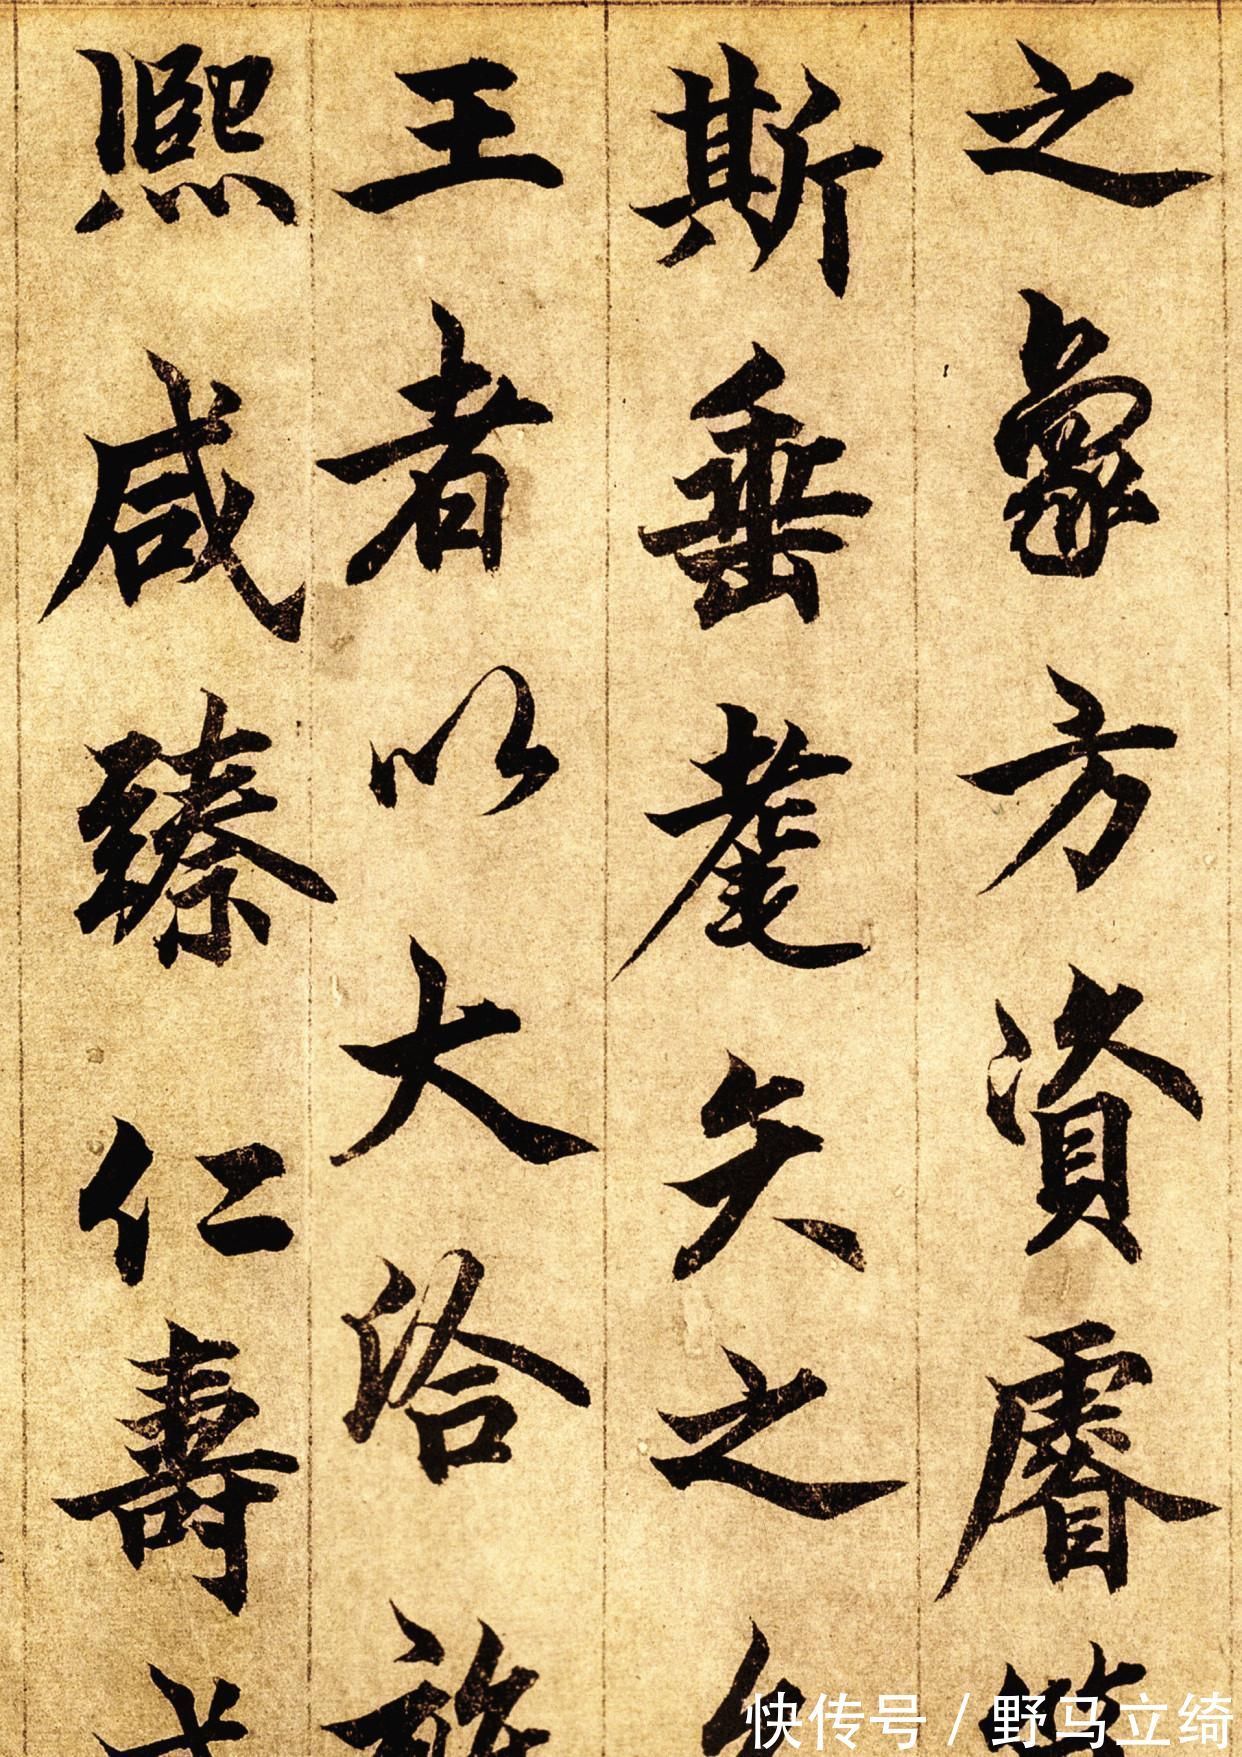 之象方資睿
斯垂耄矢之
王者以大洽
熙咸臻仁壽
快传号 / 野马立绮